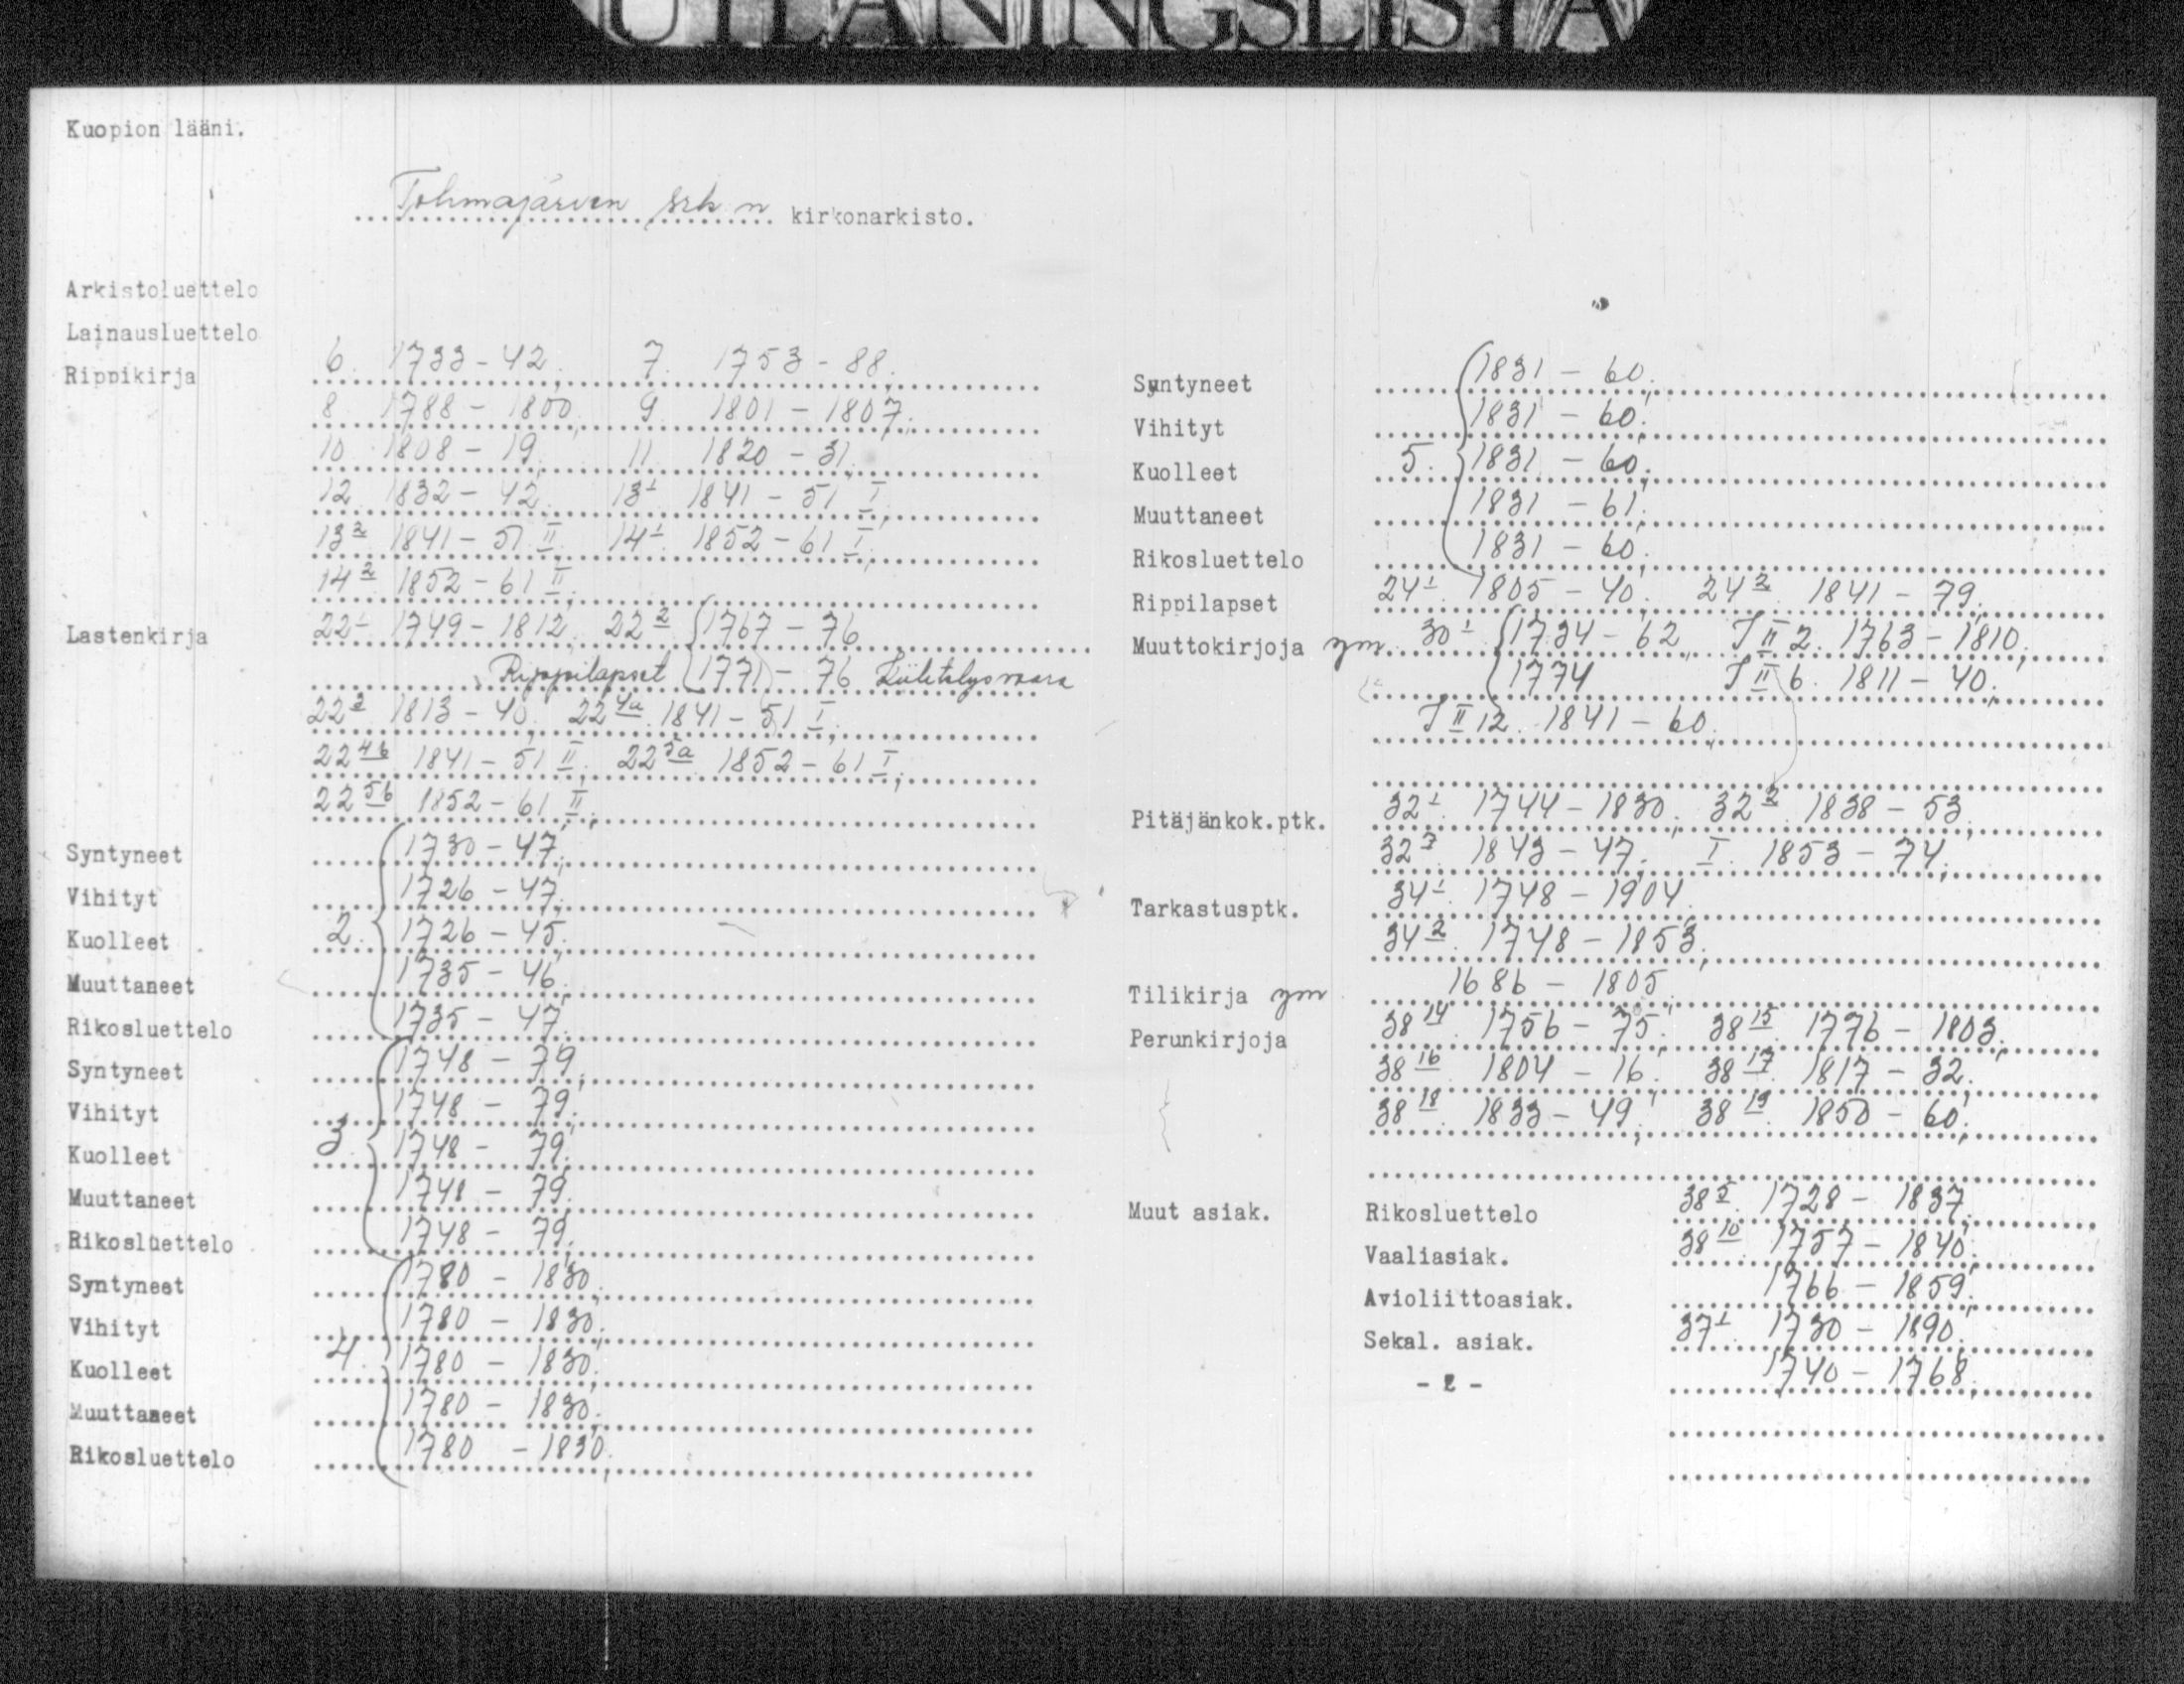 UTLÅNINGSLISTA
Kuopion lääni.
Tohmajärven srk n kirkonarkisto.
Arkistoluettelo
Lainausluettelo
Rippikirja 6. 1733-42. 7. 1753-88.
8 1788-1800, 9. 1801-1807.
10 1808-19, 11. 1820-31.
12 1832-42. 13¹ 1841-51 I,
13² 1841-51 II. 14¹. 1852-61 I.
14² 1852-61 II.
Lastenkirja 22¹ 1749-1812. 22² { 1767-76
Rippilapset { 1771-76 Kiihtelysvaara
22³ 1813-40. 22⁴ᵃ. 1841-51 I.
22⁴ᵇ 1841-51 II. 22⁵ᵃ 1852-61 I,
22⁵ᵇ 1852-61 II.
Syntyneet 1730-47.
Vihityt 1726-47.
Kuolleet 2. 1726-45.
Muuttaneet 1735-46.
Rikosluettelo 1735-47.
Syntyneet 1748-79.
Vihityt 1748-79.
Kuolleet 3. 1748-79.
Muuttaneet 1748-79.
Rikosluettelo 1748-79.
Syntyneet 1780-1830.
Vihityt 1780-1830.
Kuolleet 4. 1780-1830.
Muuttaneet 1780-1830.
Rikosluettelo 1780-1830.
Syntyneet 1831-60.
Vihityt 1831-60.
Kuolleet 5. 1831-60.
Muuttaneet 1831-61.
Rikosluettelo 1831-60.
Rippilapset 24¹. 1805-40. 24². 1841-79.
Muuttokirjoja ym. 30¹ { 1734-62, I II 2. 1763-1810.
{ 1774 I II 6. 1811-40.
I II 12. 1841-60.
Pitäjänkok.ptk. 32¹. 1744-1830. 32². 1838-53.
32³. 1843-47. I. 1853-74.
Tarkastusptk. 34¹. 1748-1904.
34². 1748-1853.
Tilikirja ym 1686-1805.
Perunkirjoja 38¹⁴. 1756-75. 38¹⁵. 1776-1803.
38¹⁶. 1804-16. 38¹⁷. 1817-32.
38¹⁸. 1833-49. 38¹⁹. 1850-60.
Muut asiak. Rikosluettelo 38⁵. 1728-1837.
Vaaliasiak. 38¹⁰. 1757-1840.
Avioliittoasiak. 1766-1859.
Sekal. asiak. 37¹. 1730-1890.
- 2 - 1740-1768.